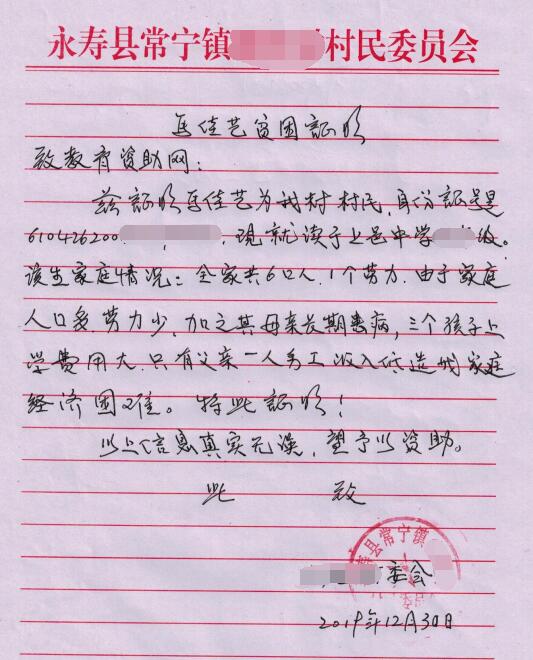 永寿县常宁镇 村民委员会
佳艺贫困证明
致教育资助网：
兹证明 佳艺为我村村民，身份证是
610426200 ，现就读于上邑中学 级。
该生家庭情况：全家共6口人，1个劳力，由于家庭
人口多，劳力少，加之其母亲长期患病，三个孩子上
学费用大，只有父亲一人务工收入低造成家庭
经济困难。特此证明！
以上信息真实无误，望予以资助。
此 致
寿县常宁镇
委会
2019年12月30日